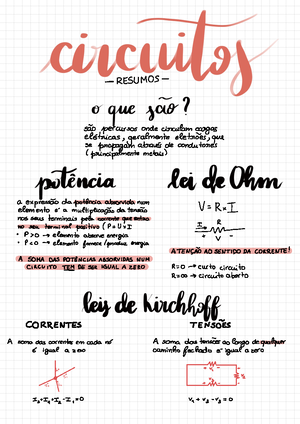 circuitos
— RESUMOS —
o que são?
são percursos onde circulam cargas
elétricas, geralmente eletrões, que
se propagam através de condutores
(principalmente metais)
potência
a expressão da potência absorvida num
elemento é a multiplicação da tensão
nos seus terminais pela corrente que entra
no seu terminal positivo (P=U×I
• P>0 → elemento absorve energia
• P<0 → elemento fornece/produz energia
A SOMA DAS POTÊNCIAS ABSORVIDAS NUM
CIRCUITO TEM DE SER IGUAL A ZERO
lei de Ohm
V = R×I
I R
+ V -
ATENÇÃO AO SENTIDO DA CORRENTE!
R=0 → curto circuito
R=∞ → circuito aberto
leis de Kirchhoff
CORRENTES
A soma das correntes em cada nó
é igual a zero
TENSÕES
A soma das tensões ao longo de qualquer
caminho fechado é igual a zero